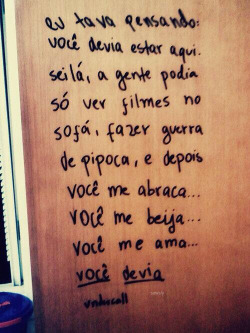 eu tava pensando:
você devia estar aqui.
sei lá, a gente podia
só ver filmes no
sofá, fazer guerra
de pipoca, e depois
você me abraça...
você me beija...
você me ama...
você devia